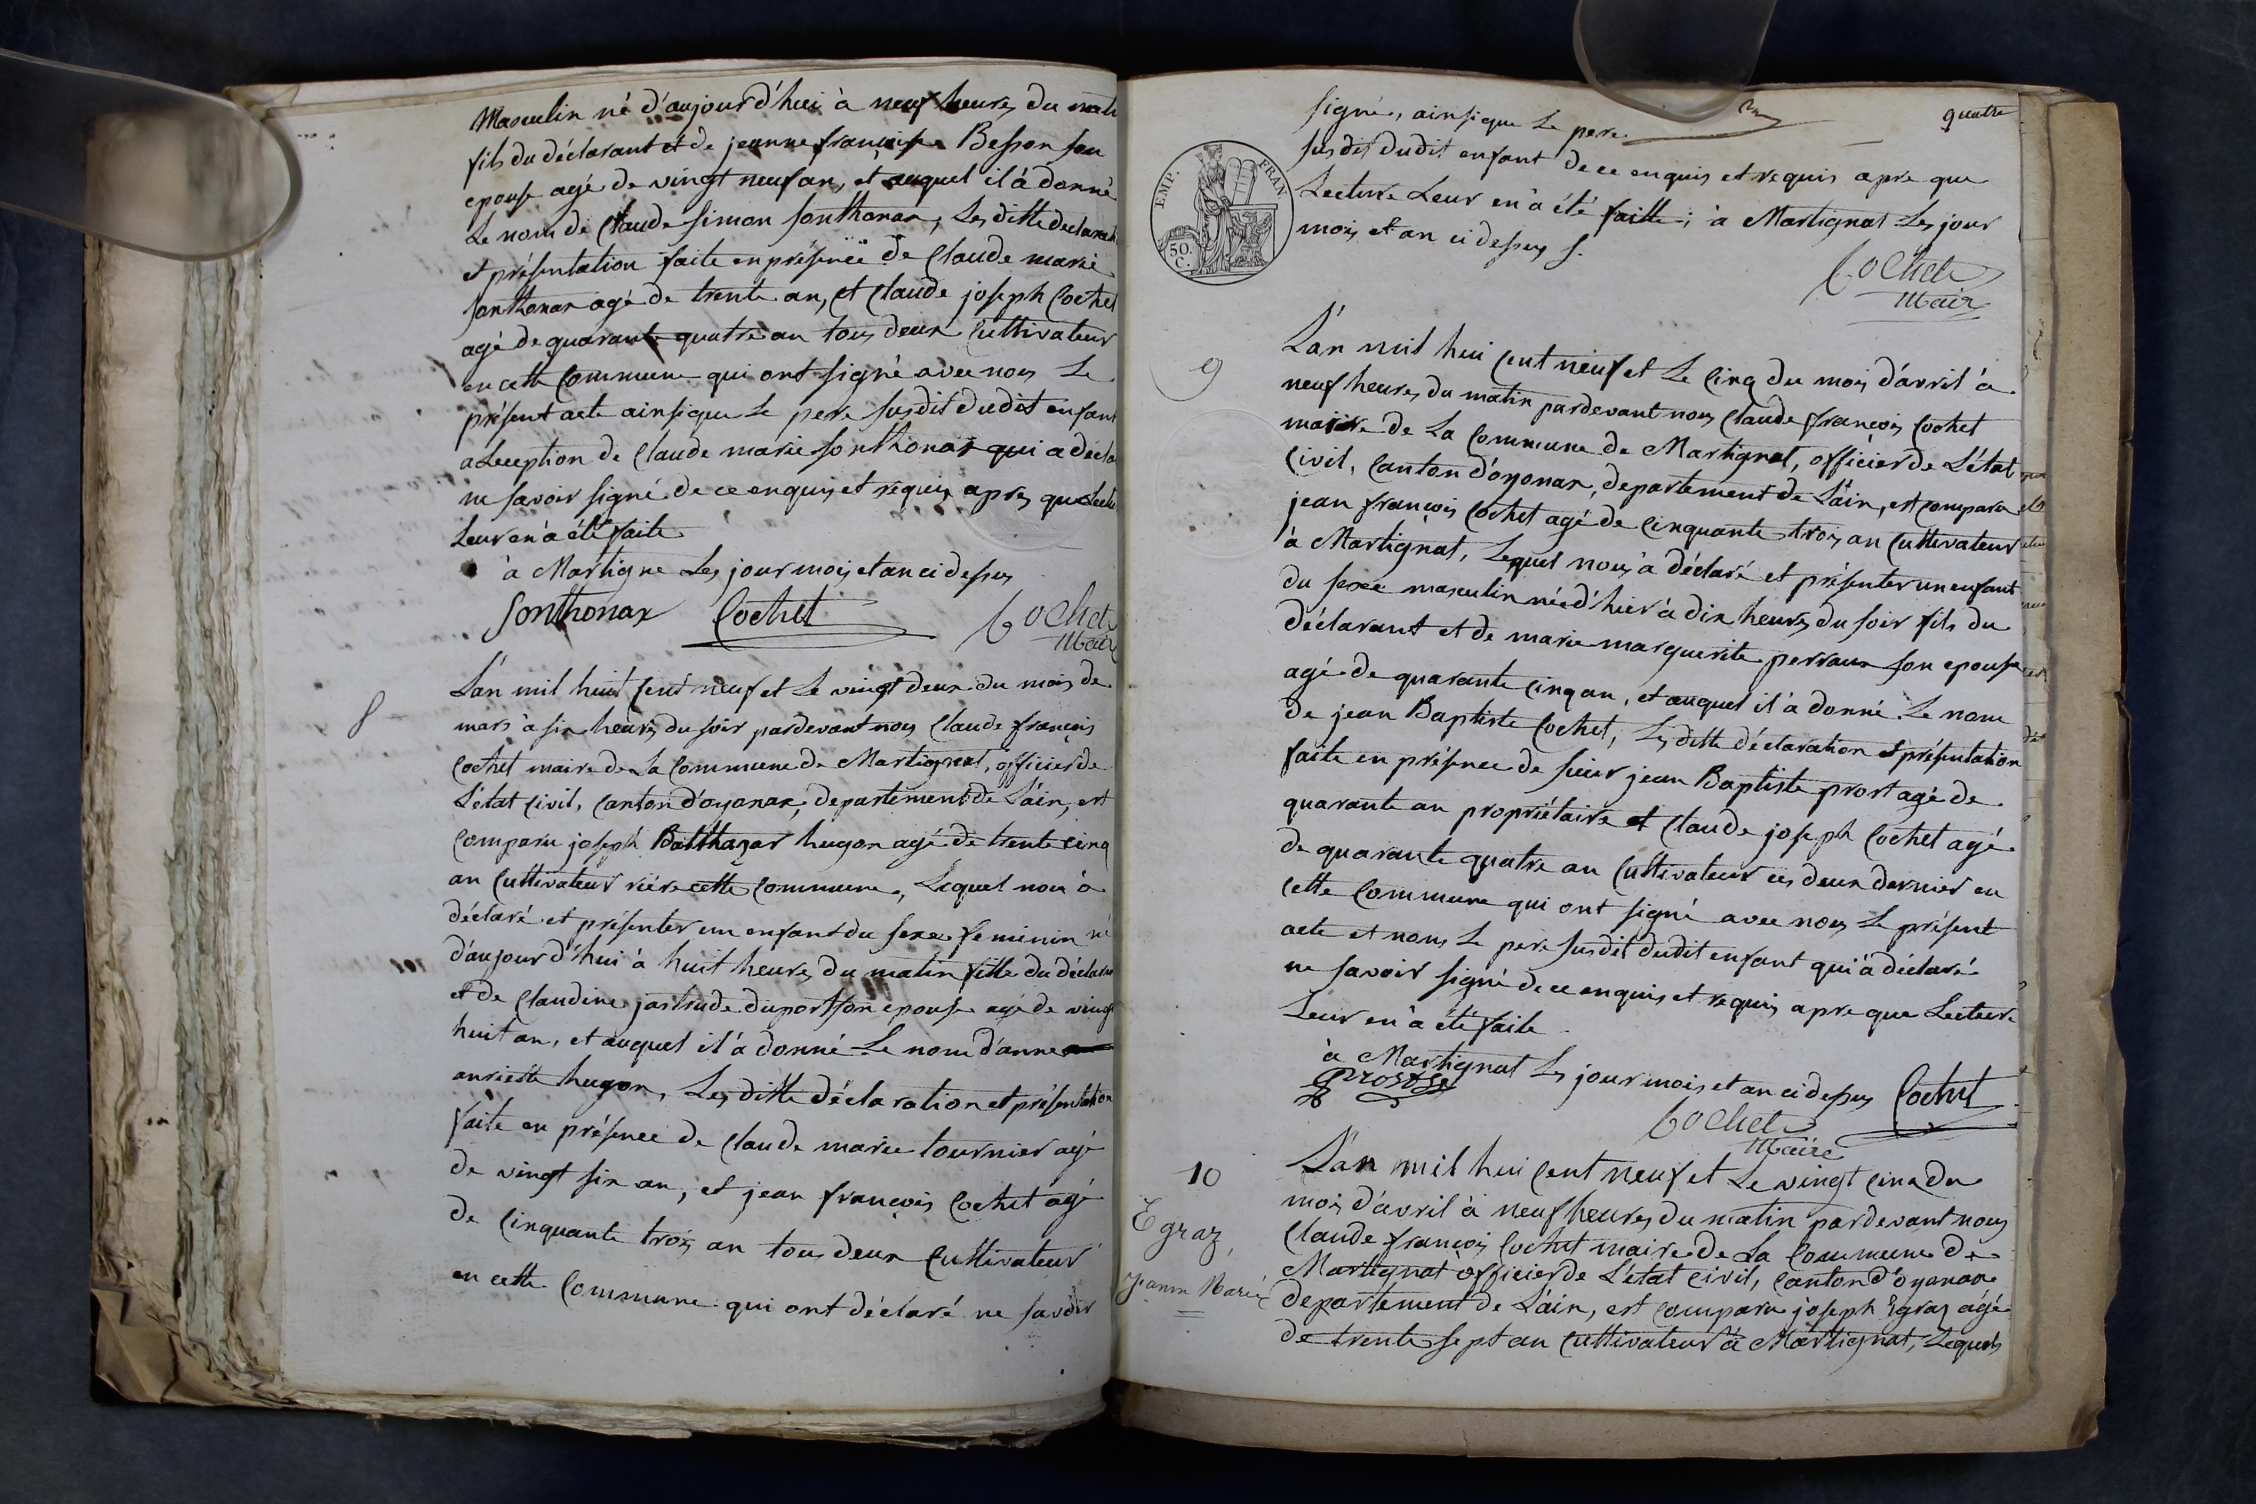 Masculin né d'aujourd'hui à neuf heures du mati
fils du déclarant et de jeanne françoise Besson son
epouse agé de vingt neuf an, et auquel il à donné
Le nom de Claude Simon Sonthonax, Les ditte declarat
et présentation faite en présence de Claude marie
Sonthonax agé de trente an, et Claude joseph Cochet
agé de quarante quatre an tous deux Cultivateur
en cette Commune qui ont signé avec nous Le
présent acte ainsi que Le pere susdit dudit enfant
a Lexception de Claude marie Sonthonax qui a décla
ne savoir signé de ce enquis et requis apres que Lectu
Leur en à été faite
à Martigna Les jour mois et an ci dessus
Sonthonax Cochet Cochet
Maire
8
L'an mil huit Cent neuf et Le vingt deux du mois de
mars à six heures du soir pardevant nous Claude françois
Cochet maire de La Commune de Martignat, officier de
L'état Civil, Canton d'oyonax, departement de L'ain, est
Comparu joseph Balthazar hugon agé de trente cinq
an Cultivateur rière cette Commune, Lequel nous à
déclaré et présenter un enfant du sexe feminin né
d'aujourd'hui à huit heures du matin fille du déclaran
et de Claudine jastrude duport son epouse agé de vingt
huit an, et auquel il à donné Le nom d'anne
anriette hugon, Les ditte déclaration et présentation
faite en présence de Claude marie tournier agé
de vingt six an, et jean françois Cochet agé
de Cinquante trois an tous deux Cultivateur
en cette Commune qui ont déclaré ne savoir
quatre
signé, ainsi que Le pere
susdit dudit enfant de ce enquis et requis apre que
Lecture Leur en à été faitte; à Martignat Les jour
mois et an ci dessus
EMP. FRAN
50.
C.
Cochet
Maire
9
L'an mil hui Cent neuf et Le Cinq du mois d'avril à
neuf heures du matin pardevant nous Claude françois Cochet
maire de La Commune de Martignat, officier de L'état
Civil, Canton d'oyonax, departement de L'ain, est Comparu
jean françois Cochet agé de Cinquante trois an Cultivateur
à Martignat, Lequel nous à déclaré et présenter un enfant
du sexe masculin née d'hier à dix heures du soir fils du
déclarant et de marie marguerite perraux son epouse
agé de quarante Cinq an, et auquel il à donné Le nom
de jean Baptiste Cochet, Les ditte déclaration et présentation
faite en présence de sieur jean Baptiste prost agé de
quarante an propriétaire et Claude joseph Cochet agé
de quarante quatre an Cultivateur ces deux dernier en
cette Commune qui ont signé avec nous Le présent
acte et nous Le pere susdit dudit enfant qui à déclaré
ne savoir signé de ce enquis et requis apre que Lecture
Leur en à été faite
à Martignat Les jour mois et an ci dessus Cochet
Cochet
Maire
10
Egraz
Jeanne Marie
L'an mil hui Cent neuf et Le vingt Cinq du
mois d'avril à neuf heures du matin pardevant nous
Claude françois Cochet maire de La Commune de
Martignat officier de L'état Civil, Canton d'oyonax
departement de L'ain, est Comparu joseph Egraz agé
de trente sept an Cultivateur à Martignat, Lequel